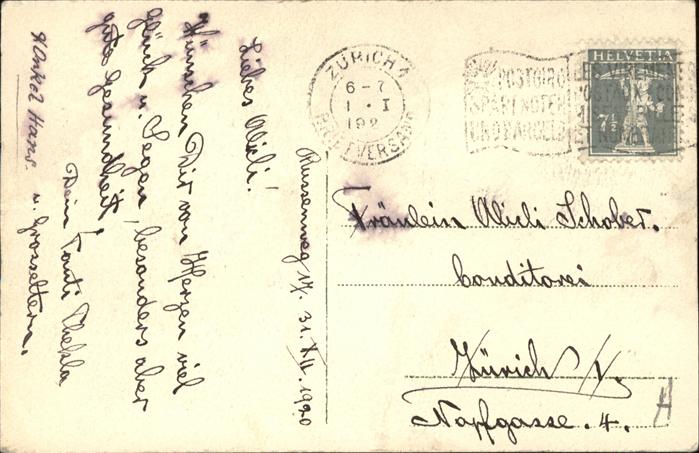 Russenweg 17. 31. XII. 1920
Liebes Alicli!
Wünschen Dir von Herzen viel
Glück u. Segen, besonders aber
gute Gesundheit,
Dein Tante Thekla
Onkel Hans. u. Grosseltern.
ZÜRICH 1
6-7
1.I
192
BRIEFVERSAND
POSTGIRO
SPART NOTEN
UND PARGELD
HELVETIA
7½
Fräulein Alicli Schober.
Conditorei
Zürich 1.
Napfgasse. 4.
A